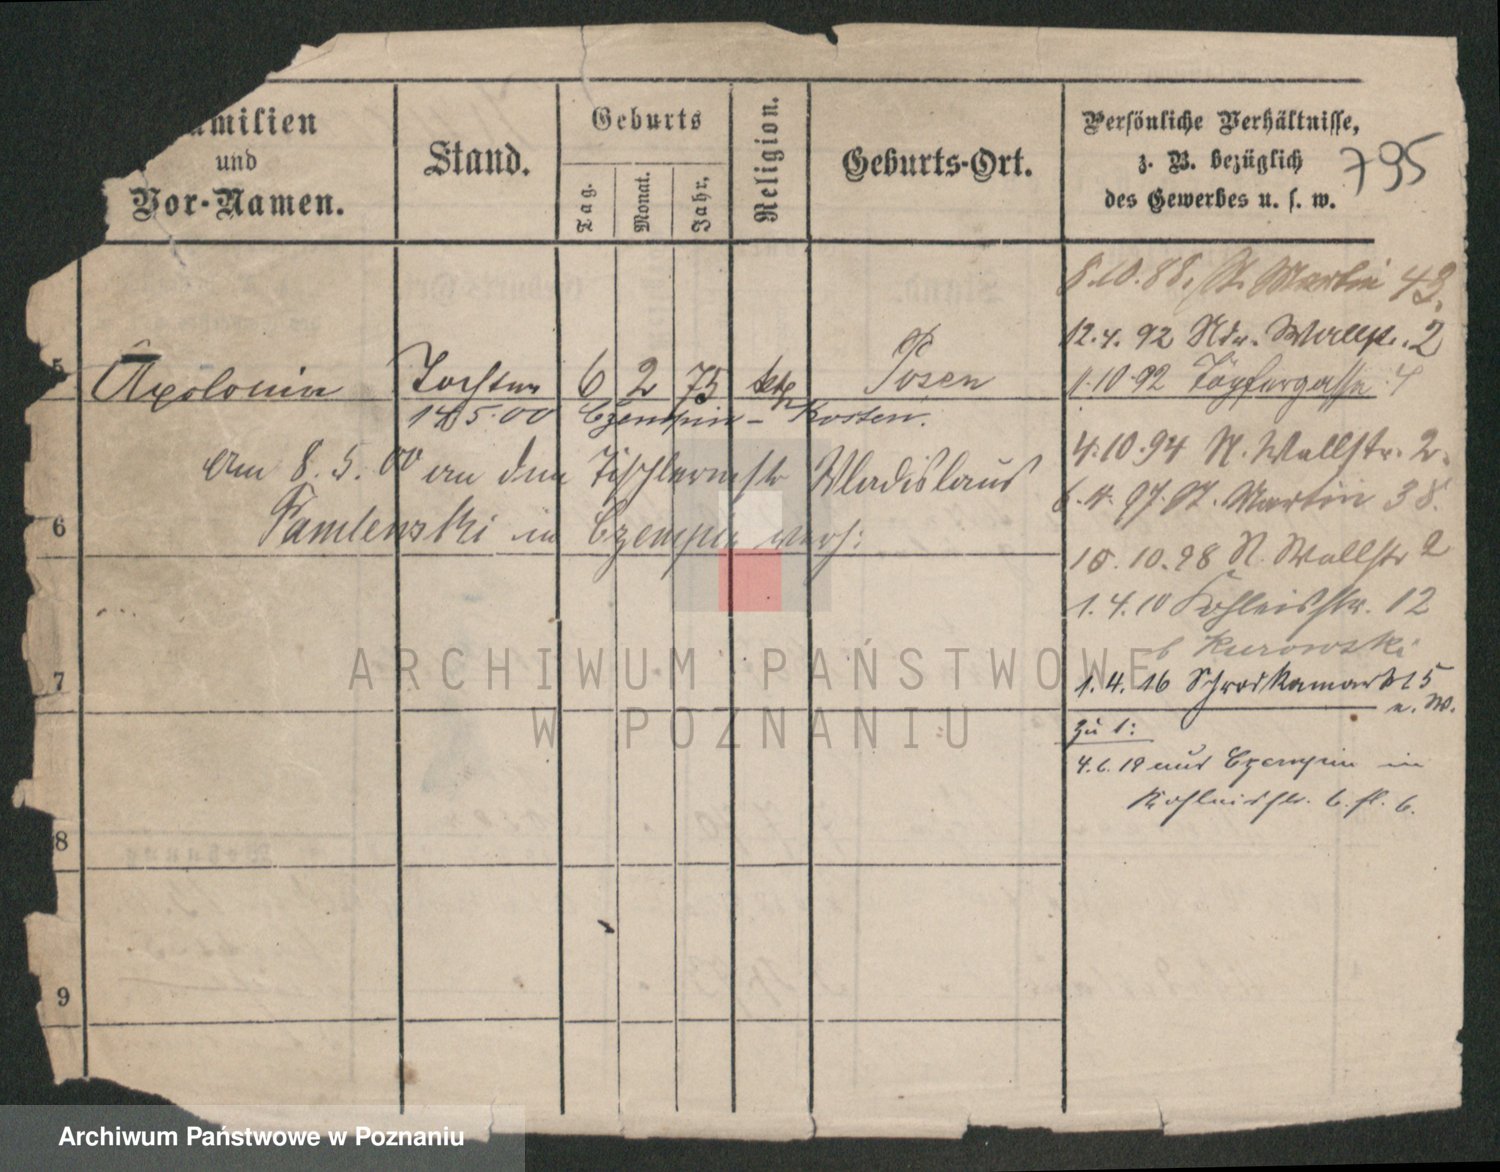 Familien
und
Vor-Namen.
Stand.
Geburts
Tag.
Monat.
Jahr.
Religion.
Geburts-Ort.
Persönliche Verhältnisse,
z. B. bezüglich
des Gewerbes u. s. w.
795
8.10.88. St. Martin 43.
12.4.92 Ndr. Wallstr. 2
1.10.92 Töpfergasse 4
4.10.94 N. Wallstr. 2.
97. St. Martin 38.
15.10.98 N. Wallstr 2
1.4.10 Kohleisstr. 12
b Kurowski
1.4.16 Schrodkamarkt 5
a. W.
5 Apolonia Tochter 6 2 75 kath Posen
14 5.00 Czempin - Kosten.
am 8.5.00 an den Tischlermstr Wladislaus
6 in Czempin verh:
7
zu 1:
4.6.19 aus Czempin in
Kohleisstr. 6.
8
9
ARCHIWUM PAŃSTWOWE
W POZNANIU
Archiwum Państwowe w Poznaniu